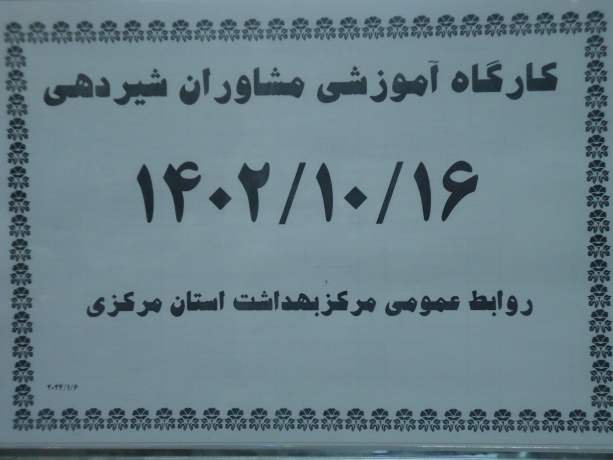 کارگاه آموزشی مشاوران شیردهی
۱۴۰۲/۱۰/۱۶
روابط عمومی مرکزبهداشت استان مرکزی
۲۰۲۴/۱/۶